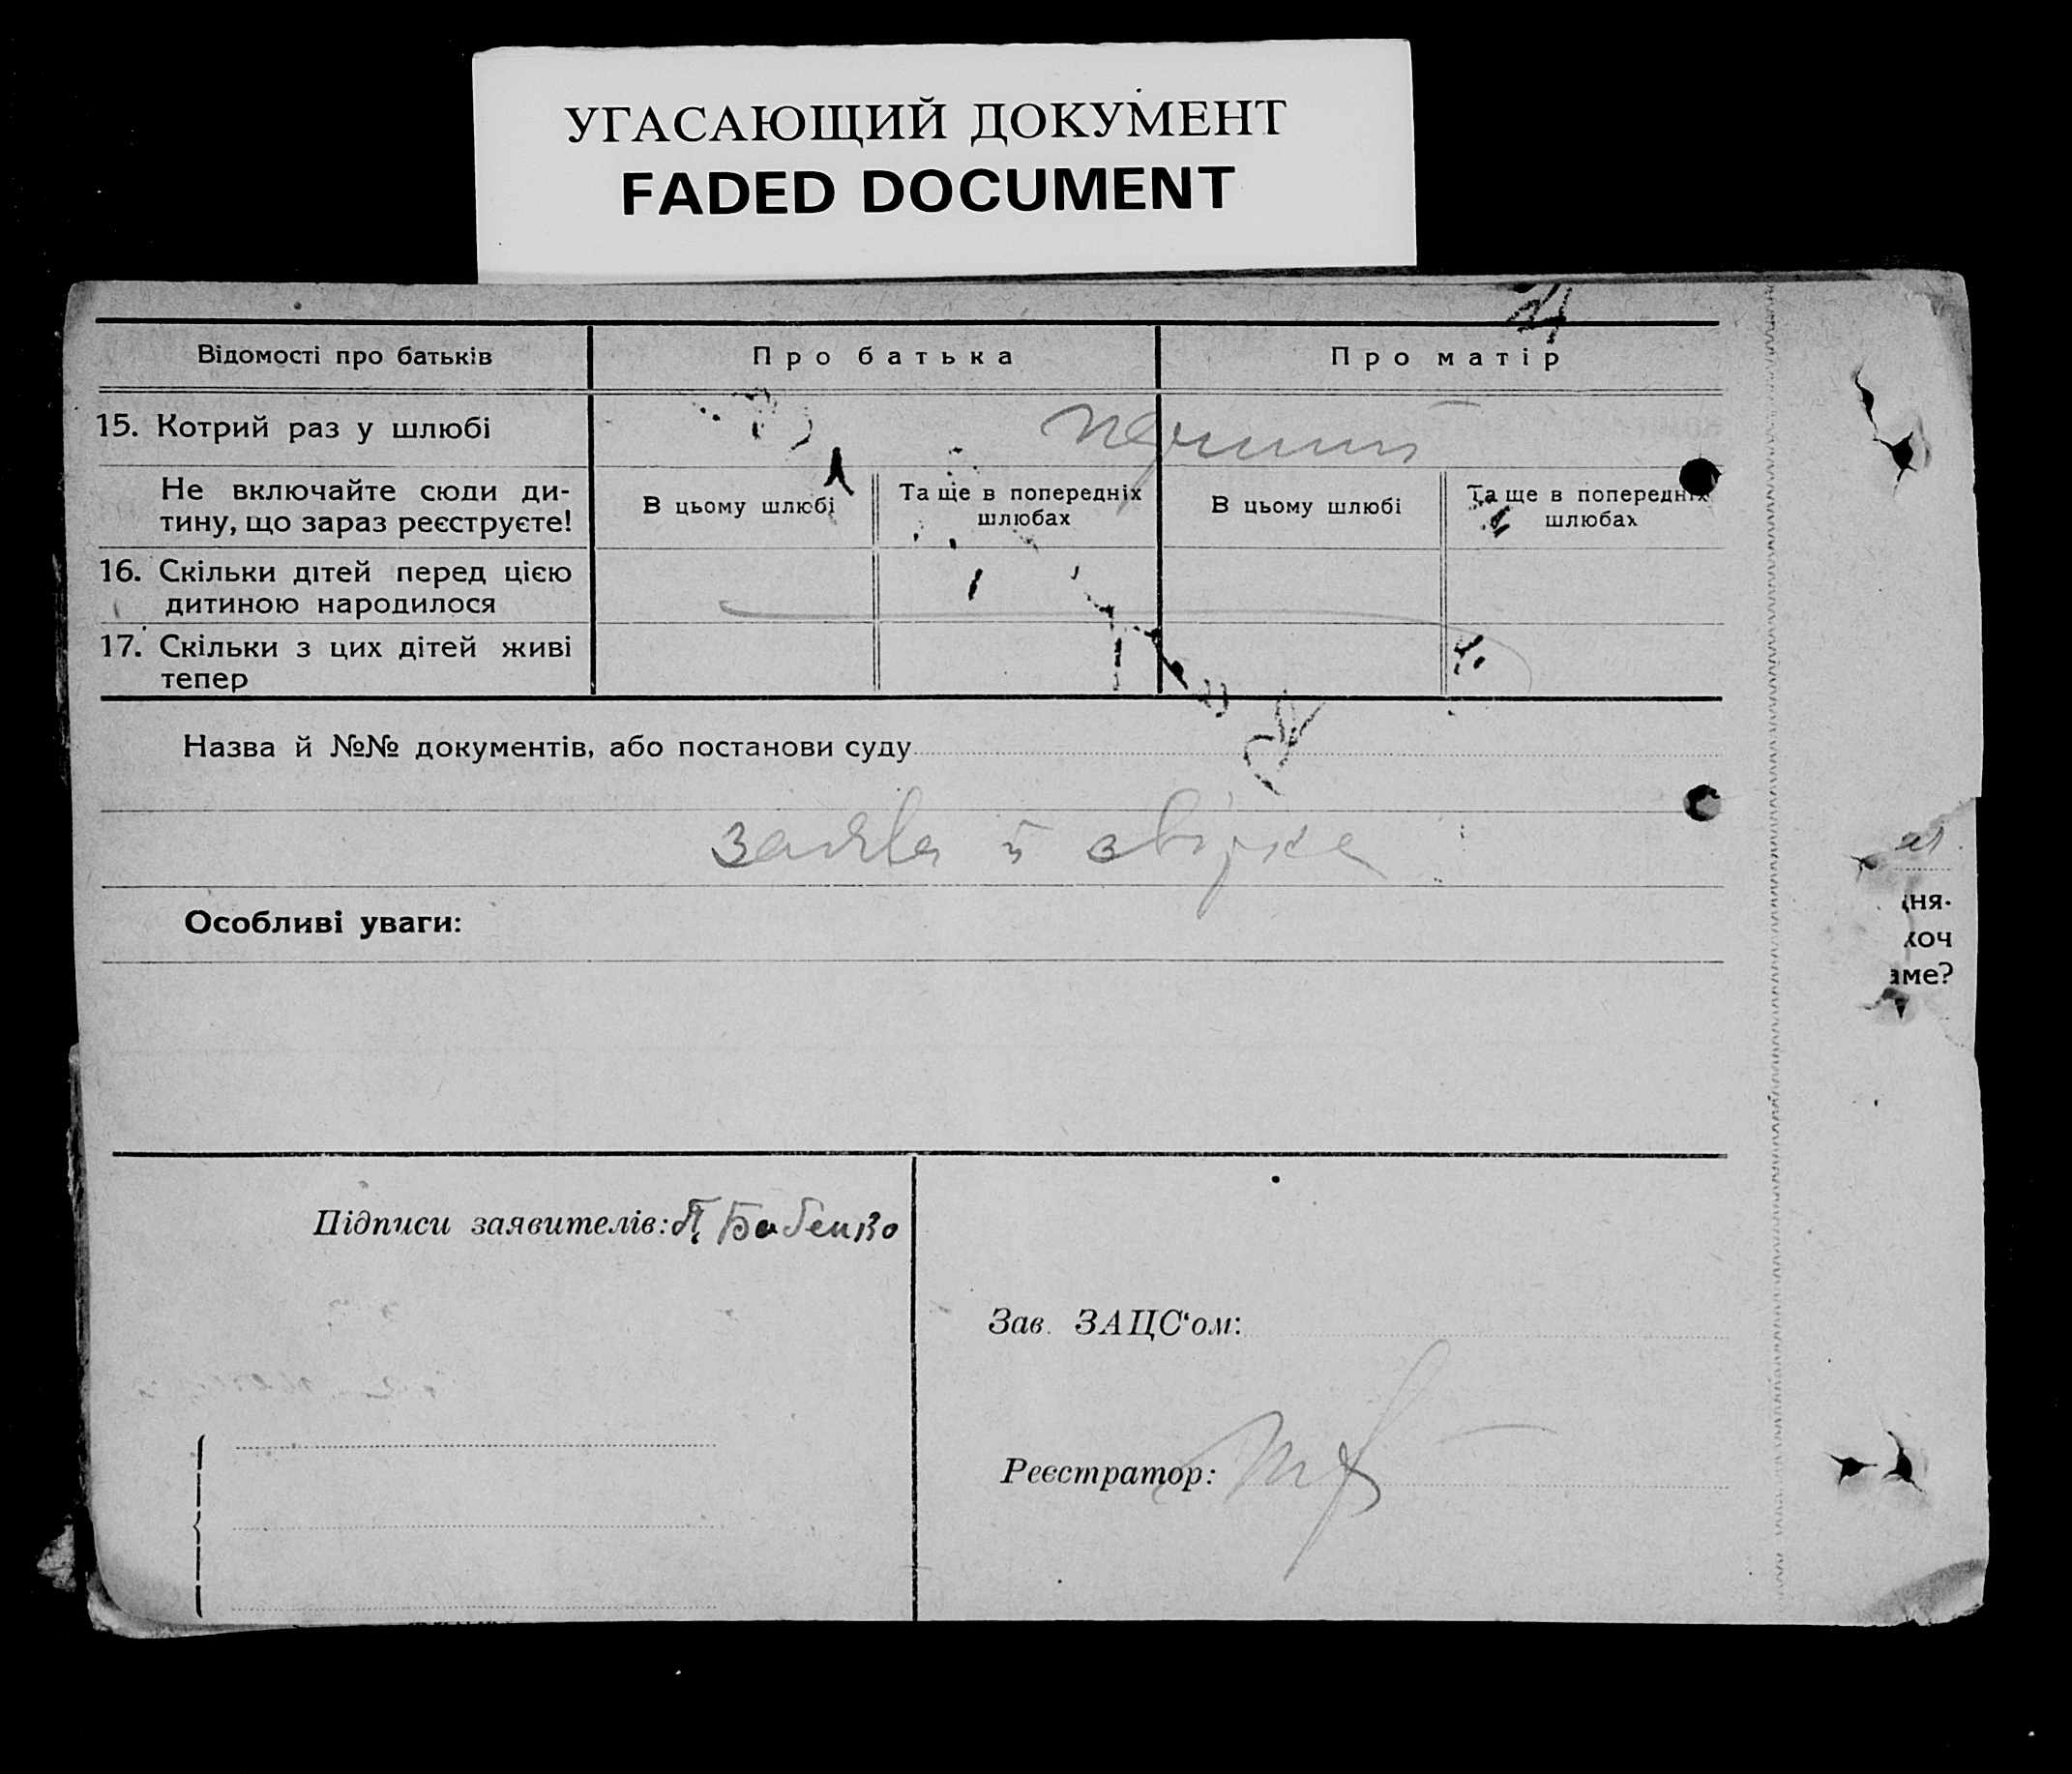 УГАСАЮЩИЙ ДОКУМЕНТ
FADED DOCUMENT
Відомості про батьків
Про батька
Про матір
15. Котрий раз у шлюбі
перший
Не включайте сюди ди-
тину, що зараз реєструєте!
В цьому шлюбі
Та ще в попередніх
шлюбах
В цьому шлюбі
Та ще в попередніх
шлюбах
16. Скільки дітей перед цією
дитиною народилося
17. Скільки з цих дітей живі
тепер
Назва й №№ документів, або постанови суду
заява й звірка
Особливі уваги:
дня-
хоч
аме?
Підписи заявителів: П Бабенко
Зав. ЗАЦС‘ом:
Реєстратор: